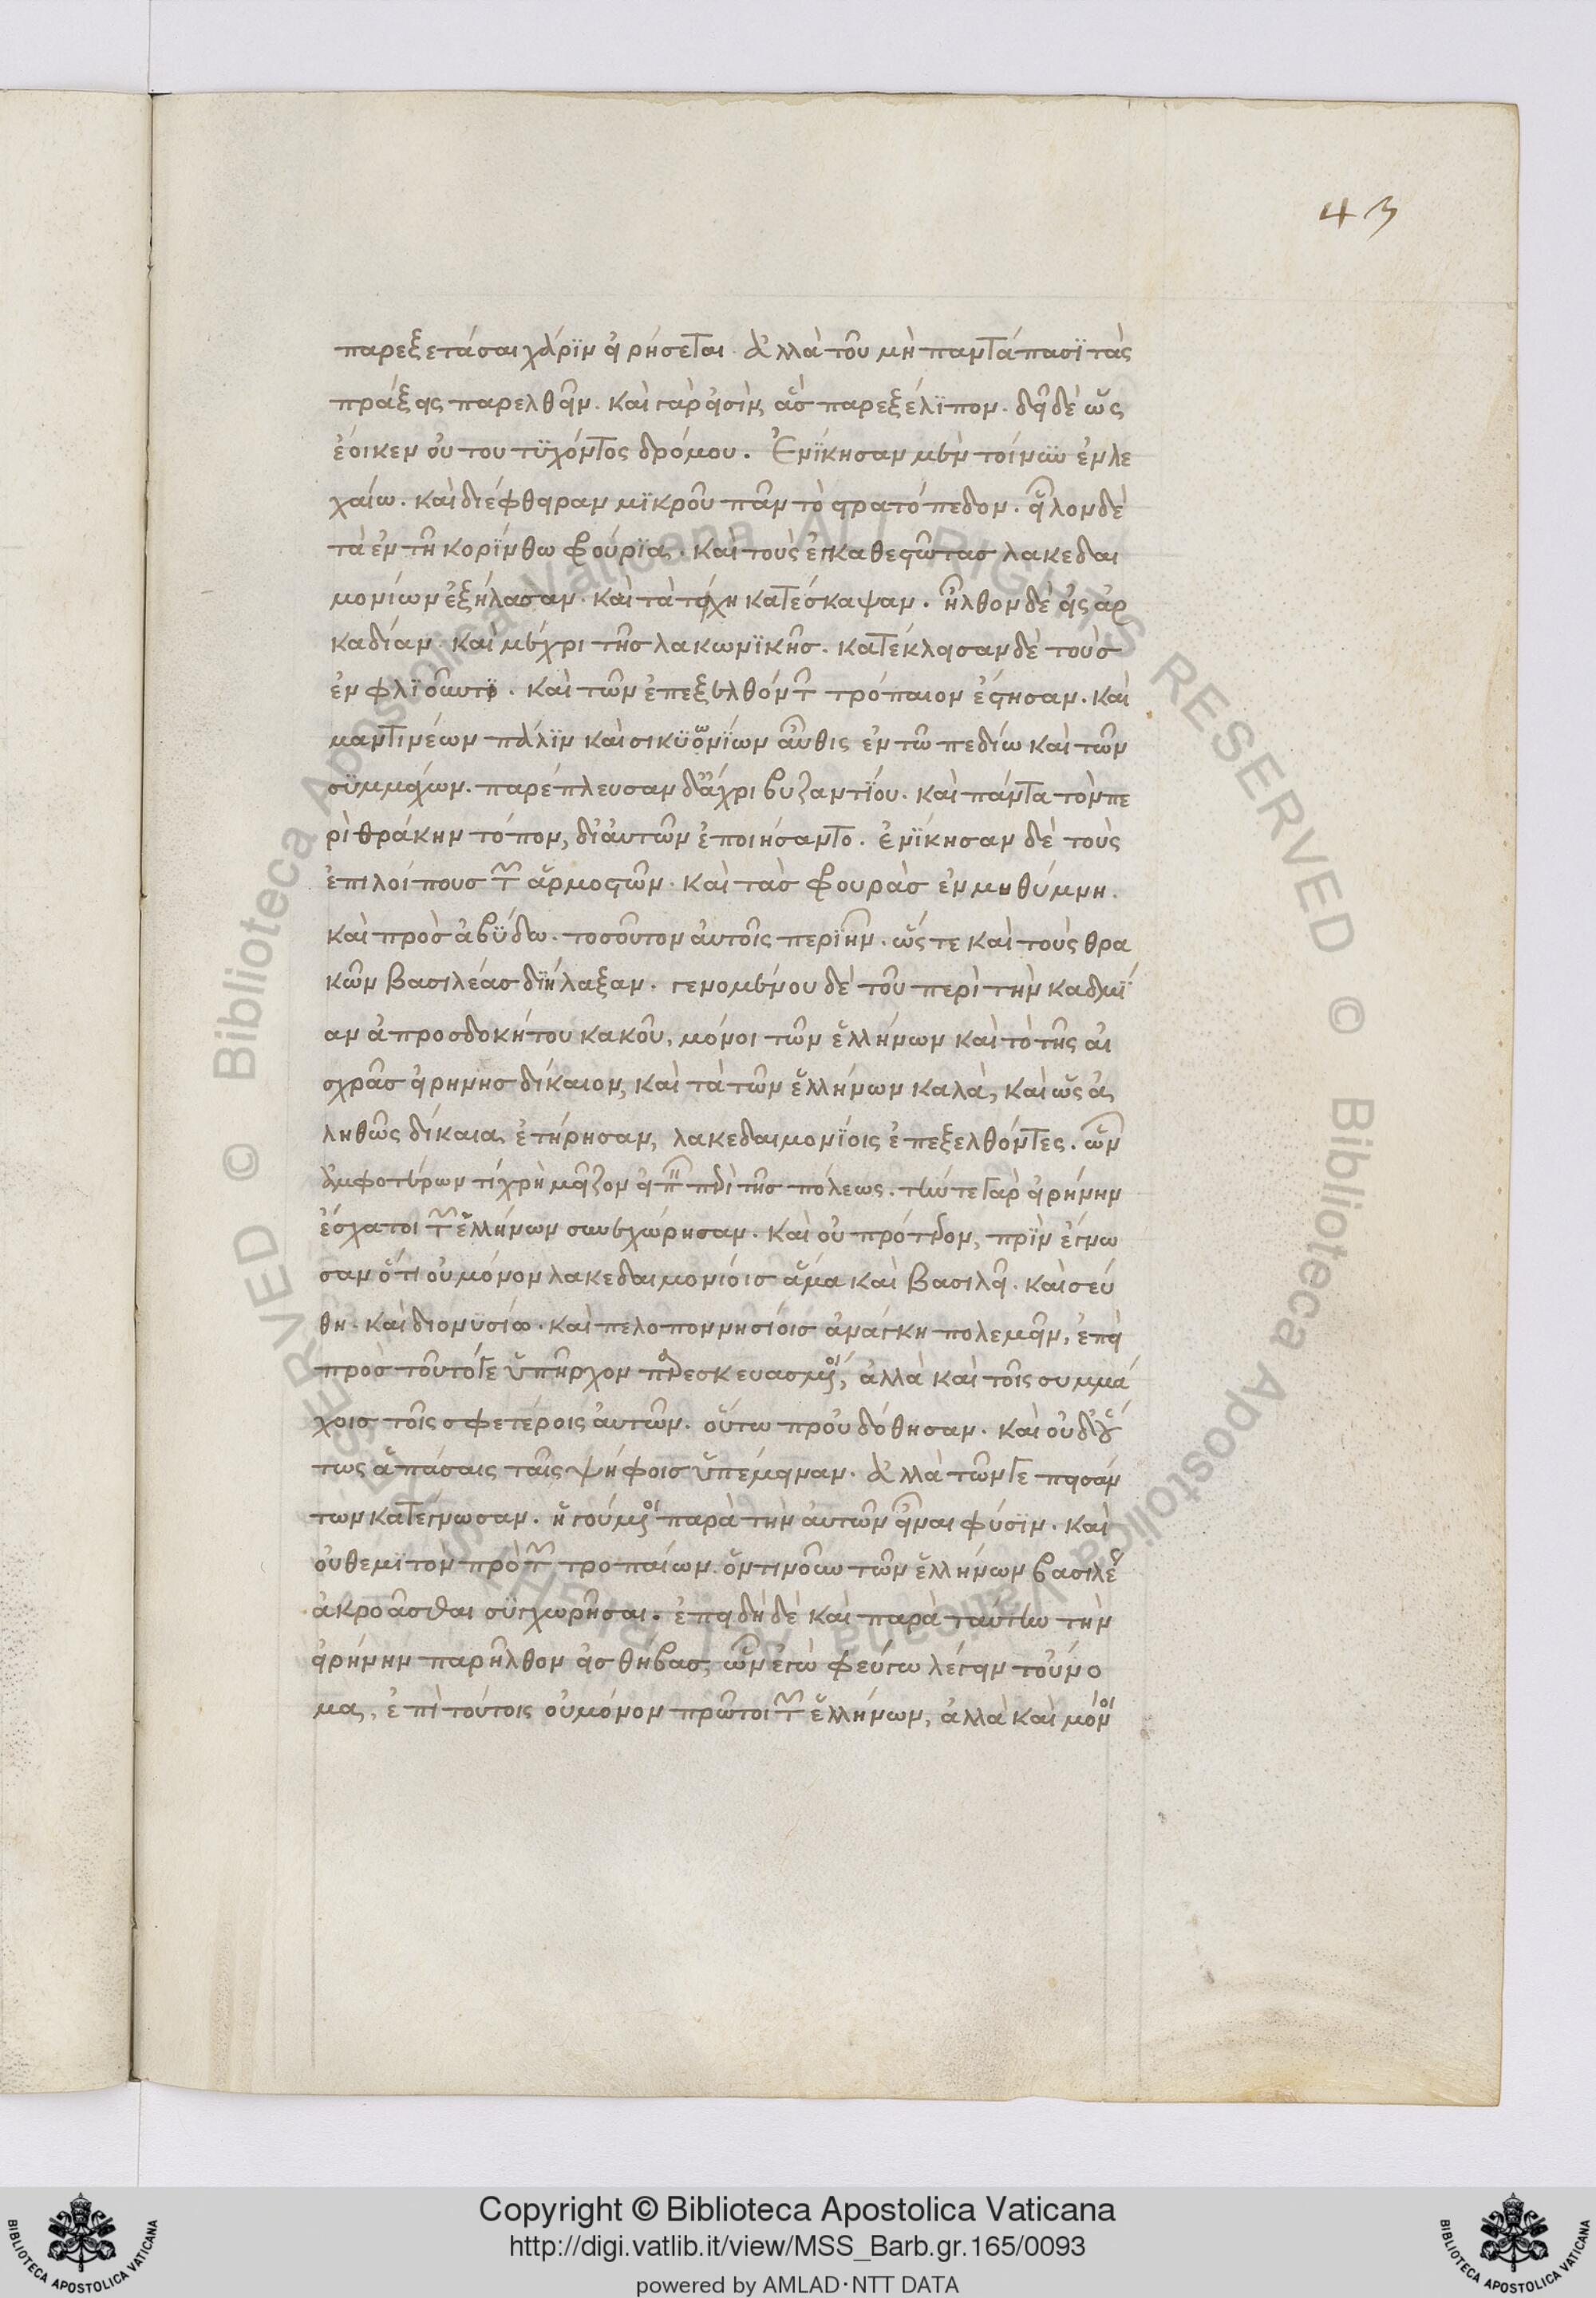 43
παρεξετάσαι χάριν εἰρήσεται. ἀλλὰ τοῦ μὴ παντάπασϊ τὰς
πράξεις παρελθεῖν. καὶ γὰρ εἰσὶν ἃσ παρεξέλϊπον. δεῖ δὲ ὡς
ἔοικεν οὐ του τϋχόντος δρόμου. Ἐνϊκησαν μὲν τοίνυν ἐν λε
χαίω. καὶ διέφθειραν μϊκροῦ πᾶν τὸ στρατόπεδον. εἷλον δὲ
τὰ ἐν τῆ κορίνθω φρούρϊα. καὶ τοὺς ἐγκαθεστῶτασ λακεδαι
μονίων ἐξήλασαν. καὶ τὰ τείχη κατέσκαψαν. ἦλθον δὲ εἰς ἀρ
καδίαν. καὶ μέχρι τῆσ λακωνϊκῆσ. κατέκλεισαν δὲ τοὺσ
ἐν φλϊοῦντϊ. καὶ τῶν ἐπεξελθόντων τρόπαιον ἔστησαν. καὶ
μαντινέων πάλϊν καὶ σικϋωνίων αὖθις ἐν τῶ πεδίω καὶ τῶν
σϋμμάχων. παρέπλευσαν δ' ἄχρι βυζαντίου. καὶ πάντα τὸν πε
ρὶ θράκην τόπον, δι' αὐτῶν ἐποιήσαντο. ἐνϊκησαν δὲ τοὺς
ἐπιλοίπουσ τῶν ἁρμοστῶν. καὶ τὰσ φρουρὰσ ἐν μηθύμνη.
καὶ πρὸσ ἀβϋδω. τοσοῦτον αὐτοῖς περϊῆν. ὥς τε καὶ τοὺς θρα
κῶν βασιλέασ δϊήλαξαν. γενομένου δὲ τοῦ περὶ τὴν καδμϊ
αν ἀπροσδοκήτου κακοῦ, μόνοι τῶν ἑλλήνων καὶ τὸ τῆς αἰ
σχρᾶσ εἰρηνησ δίκαιον, καὶ τὰ τῶν ἑλλήνων καλὰ, καὶ ὡς ἀ
ληθῶς δίκαια ἐτήρησαν, λακεδαιμονίοις ἐπεξελθόντες. ὧν
ἀμφοτέρων τί χρὴ μεῖζον εἰπεῖν περὶ τῆσ πόλεως. τήν τε γὰρ εἰρήνην
ἔσχατοι τῶν ἑλλήνων συνεχώρησαν. καὶ οὐ πρότερον, πρὶν ἔγνω
σαν ὅτι οὐ μόνον λακεδαιμονίοισ ἅμα καὶ βασιλεῖ. καὶ σεύ
θη. καὶ διονϋσίω. καὶ πελοποννησίοισ ἀνάγκη πολεμεῖν, ἐπεὶ
πρὸσ τοῦτό γε ὑπῆρχον παρεσκευασμένοι, ἀλλὰ καὶ τοῖς συμμά
χοισ τοῖς σφετέροις αὐτῶν. οὕτω προὐδόθησαν. καὶ οὐδ' οὕ
τως ἁπάσαις ταῖς ψήφοισ ὑπέμειναν. ἀλλὰ τῶν γε πεισάν
των κατέγνωσαν. ἡγούμενοι παρὰ τὴν αὐτῶν εἶναι φύσϊν. καὶ
οὐ θεμϊτον πρὸ τῶν τροπαίων. ὅντινοῦν τῶν ἑλλήνων βασιλέως
ἀκροᾶσθαι σϋγχωρῆσαι. ἐπειδὴ δὲ καὶ παρὰ ταύτην τὴν
εἰρήνην παρῆλθον εἰσ θήβασ, ὧν ἐγὼ φεύγω λέγειν τοὔνο
μα, ἐπὶ τούτοις οὐ μόνον πρῶτοι τῶν ἑλλήνων, ἀλλὰ καὶ μόνοι
Copyright © Biblioteca Apostolica Vaticana
http://digi.vatlib.it/view/MSS_Barb.gr.165/0093
powered by AMLAD·NTT DATA